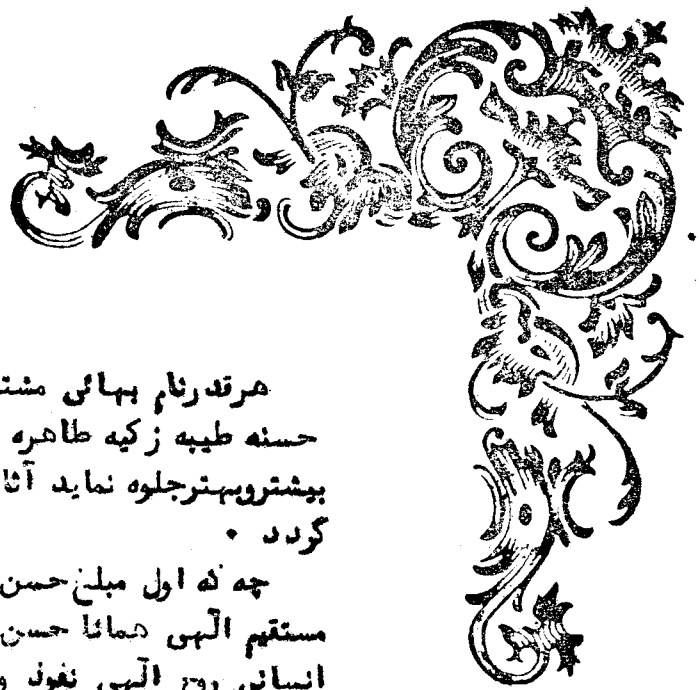 هرقدر نام بهائی
حسنه طیبه زکیه طاهره
بیشتر و بهتر جلوه نماید
گردد .
چه که اول مبلغ حسن
مستقیم الهی همانا حسن
انسانی روح الهی نفوذ و